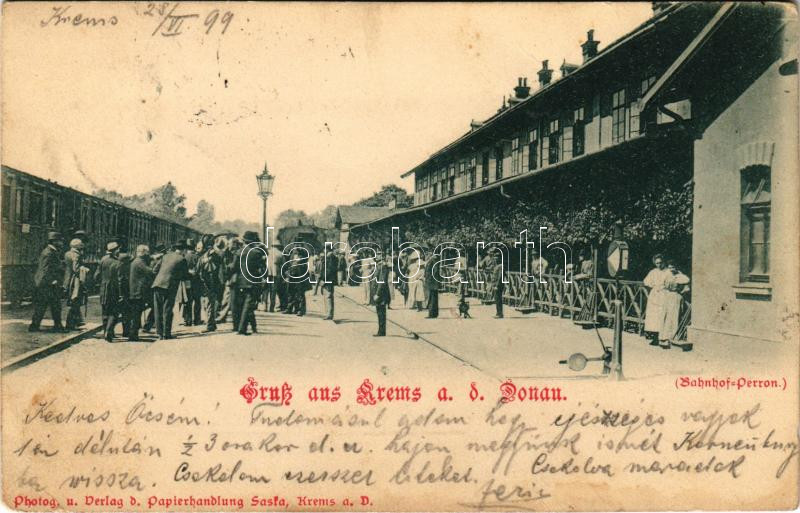 Krems 28/VI 99
darabanth.com
Gruß aus Krems a. d. Donau.
(Bahnhof-Perron.)
Kedves Öcsém! Tudomásul adom hogy egészséges vagyok
délután ½ 3 orakor d. u. hajon megyünk ismét Korneuburg
ba vissza. Csokolom ezerszer titeket. Csokolva maradok
Photog. u. Verlag d. Papierhandlung Saska, Krems a. D.